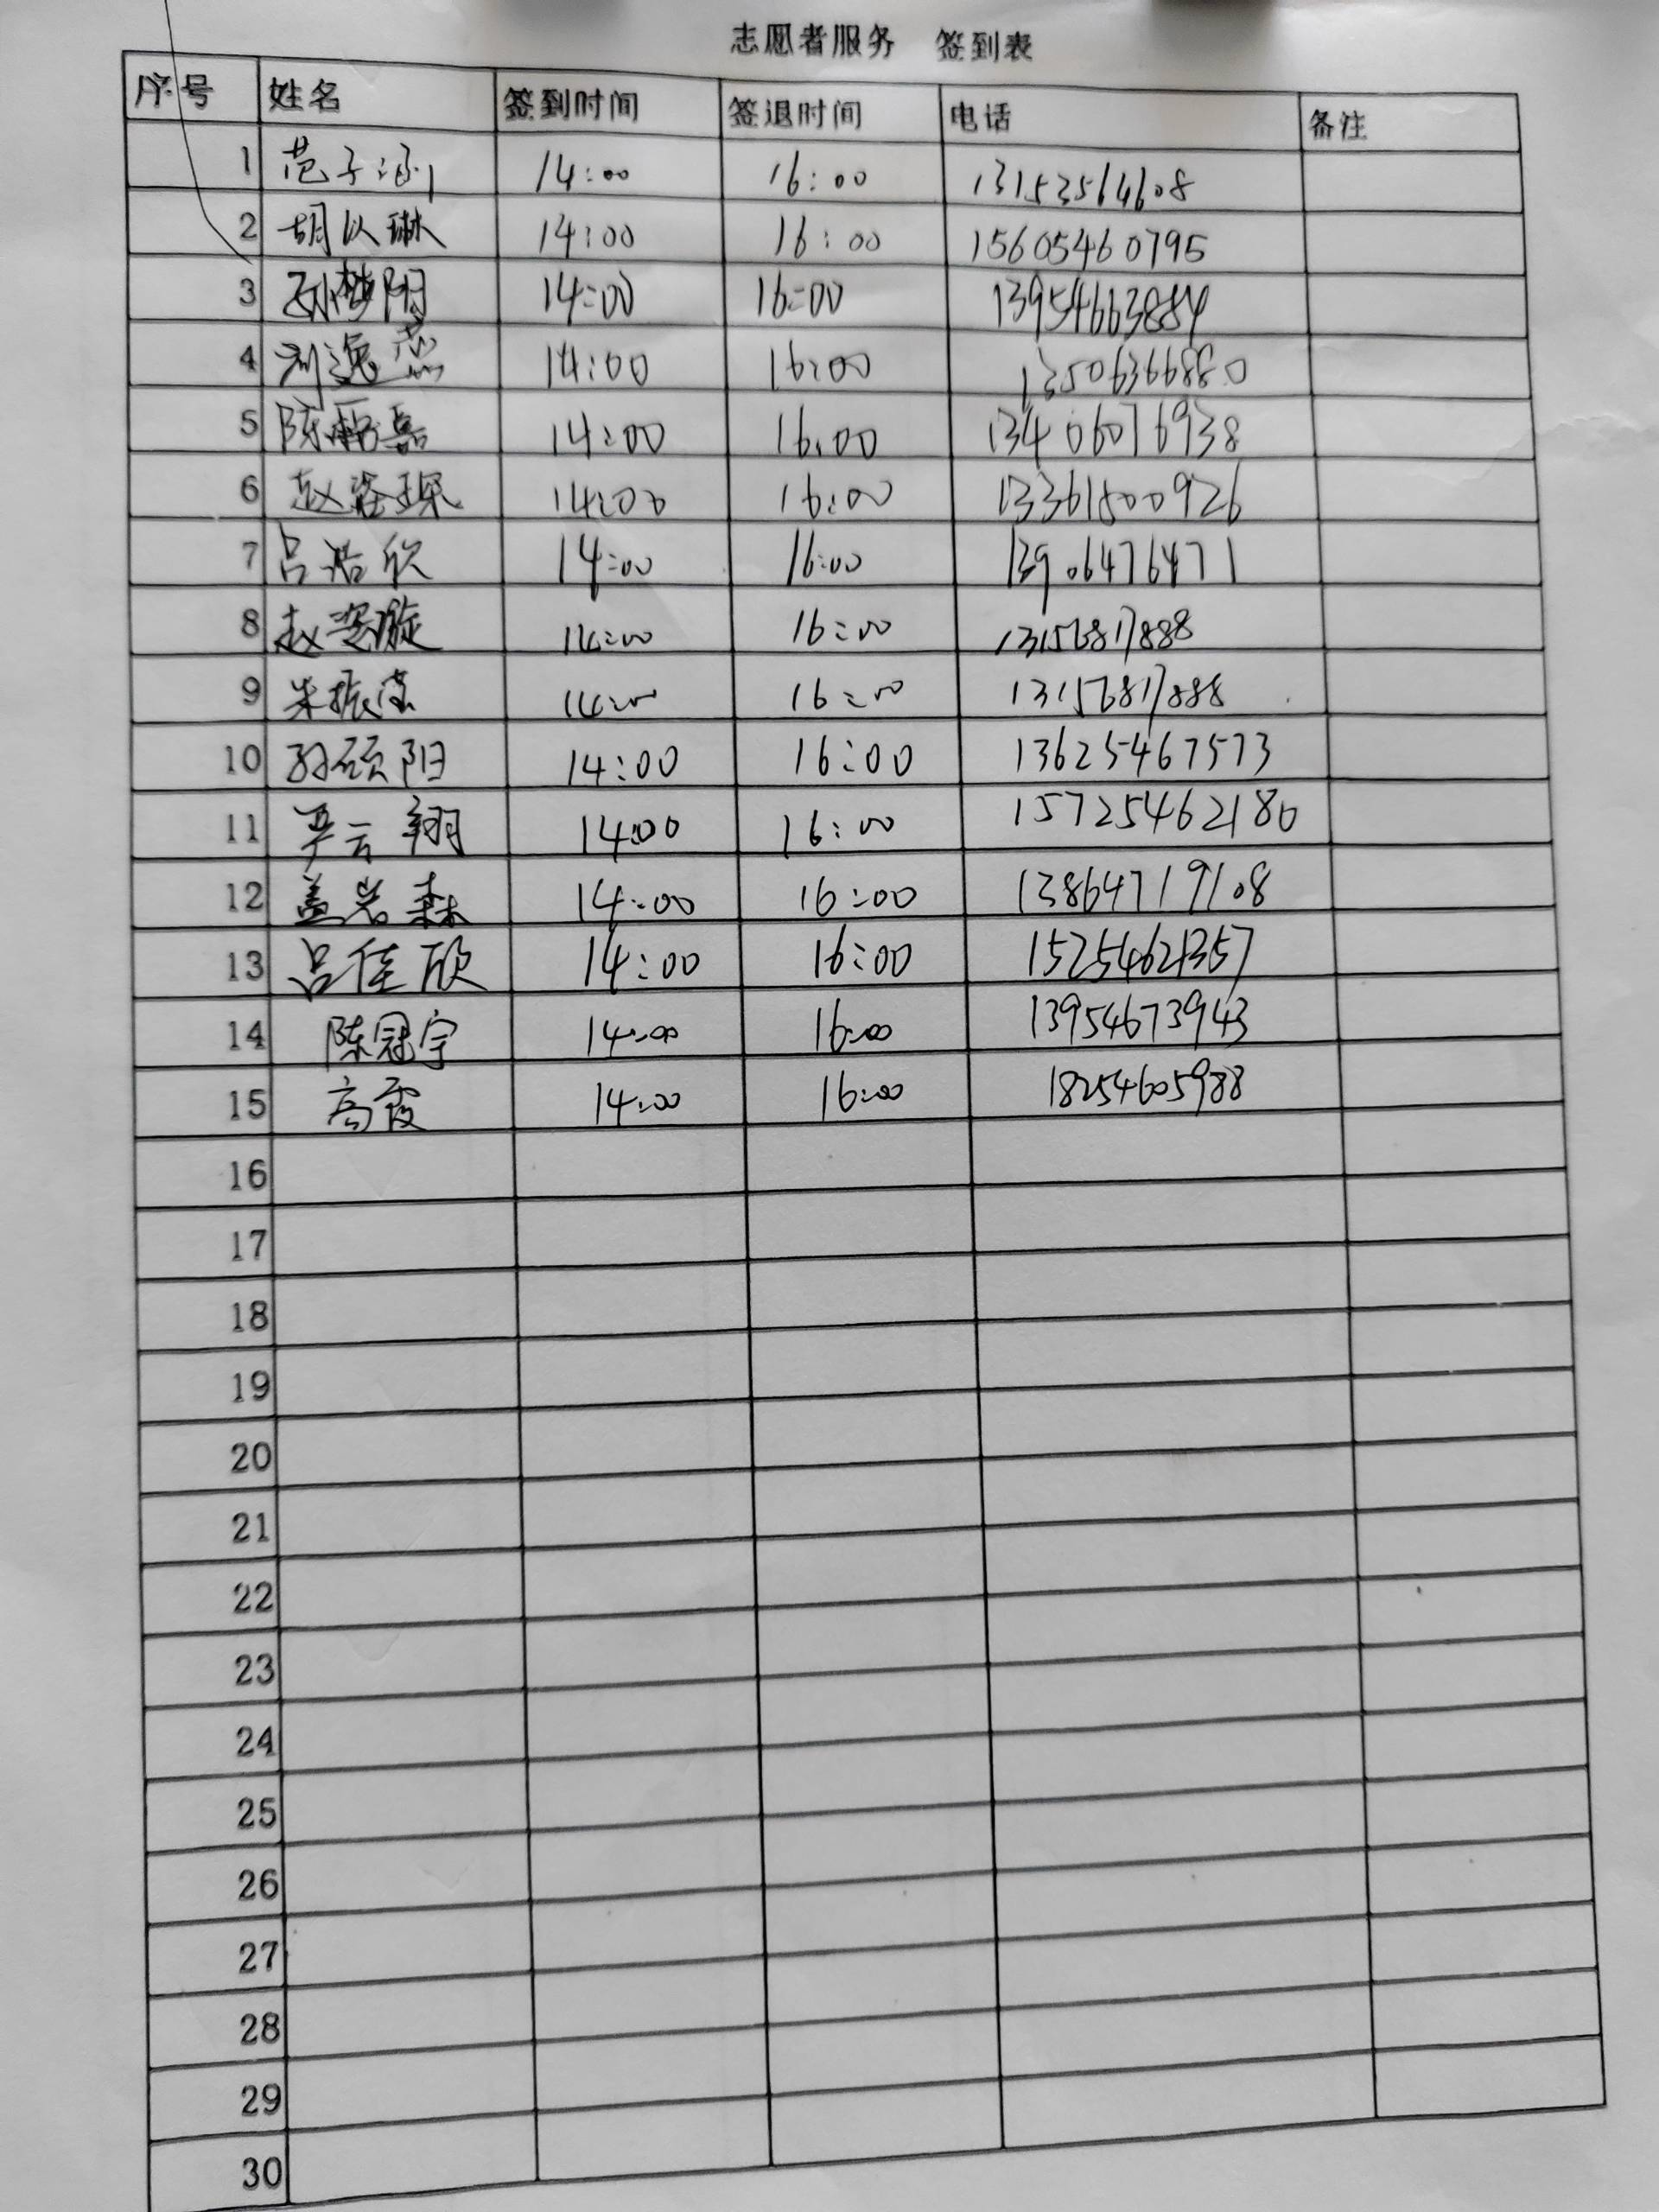 志愿者服务 签到表
序号 姓名 签到时间 签退时间 电话 备注
1 范子涵 14:00 16:00 13152564608
2 胡以琳 14:00 16:00 15605460795
3 孙梦阳 14:00 16:00 13954663884
4 刘逸蕊 14:00 16:00 13506366880
5 陈丽嘉 14:00 16:00 13406076938
6 赵 琛 14:00 16:00 13361500926
7 吕浩欣 14:00 16:00 13906476471
8 赵姿璇 14:00 16:00 13156817888
9 朱振 14:00 16:00 13156817888
10 孙硕阳 14:00 16:00 13625467573
11 云翔 14:00 16:00 15725462180
12 盖岩森 14:00 16:00 13864719108
13 吕佳欣 14:00 16:00 15254621357
14 陈冠宇 14:00 16:00 13954673943
15 高霞 14:00 16:00 18254605988
16
17
18
19
20
21
22
23
24
25
26
27
28
29
30